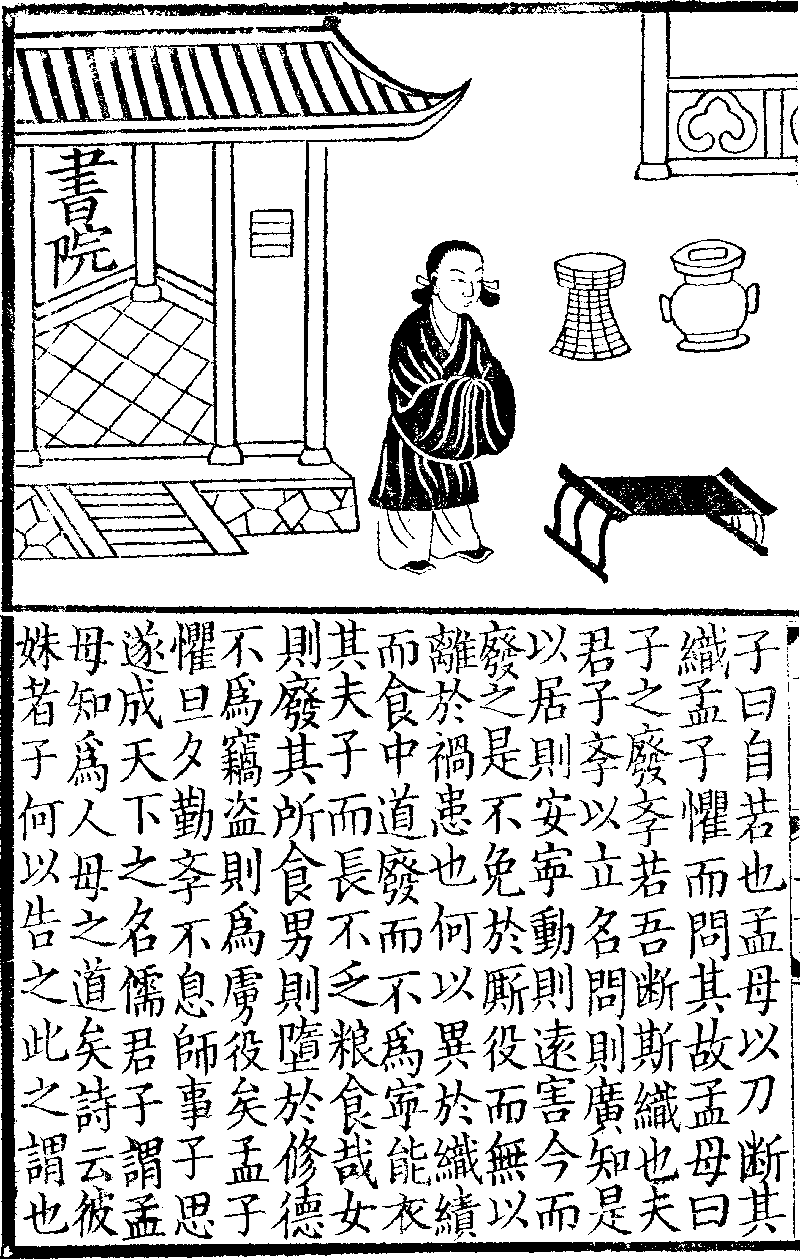 書院
子曰自若也孟母以刀断其
織孟子懼而問其故孟母曰
子之廢斈若吾断斯織也夫
君子斈以立名問則廣知是
以居則安寕動則遠害今而
廢之是不免於厮役而無以
離於禍患也何以異於織績
而食中道廢而不爲寕能衣
其夫子而長不乏粮食哉女
則廢其所食男則墮於修德
不爲竊盗則爲虜役矣孟子
懼旦夕勤斈不息師事子思
遂成天下之名儒君子謂孟
母知爲人母之道矣詩云彼
姝者子何以告之此之謂也